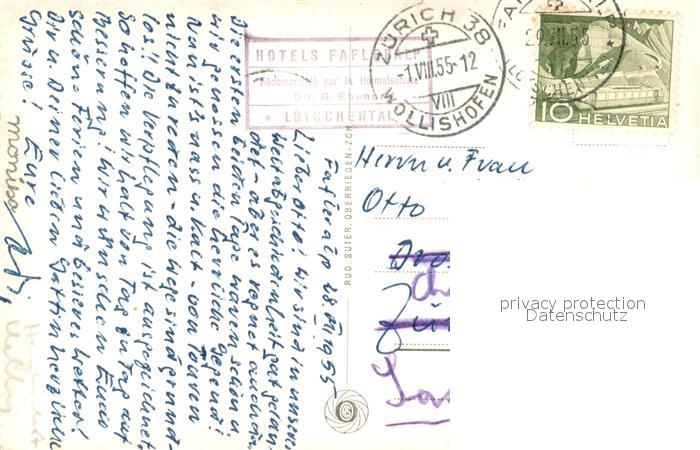 HOTELS FAFLERALP
Recommandé par le Heimatschutz
Dir. G. Ebener
* LÖTSCHENTAL
ZÜRICH 38
1.VIII.55-12
VIII
WOLLISHOFEN
29.VII.55
HELVETIA
10
Herrn u. Frau
Otto
privacy protection
Datenschutz
RUD. SUTER, OBERRIEDEN-ZCH
Fafleralp 28.VII.1955
Lieber Otto! Wir sind in unserer
Weltabgeschiedenheit gut gelan-
det - aber es regnet auch da.
Die ersten beiden Tage waren schön u.
wir genossen die herrliche Gegend!
Nun ist's nass u. kalt - von Touren
nicht zu reden - die Wege sind grund-
los!! Die Verpflegung ist ausgezeichnet.
So hoffen wir halt von Tag zu Tag auf
Besserung! Wir wünschen Euch
schöne Ferien und besseres Wetter!
Dir u. Deiner lieben Gattin herzliche
Grüsse! Eure
Monisa